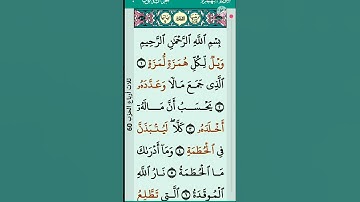 بِسْمِ ٱللَّهِ ٱلرَّحْمَٰنِ ٱلرَّحِيمِ
وَيْلٌ لِّكُلِّ هُمَزَةٍ لُّمَزَةٍ ١
ٱلَّذِى جَمَعَ مَالًا وَعَدَّدَهُۥ
٢ يَحْسَبُ أَنَّ مَالَهُۥٓ
أَخْلَدَهُۥ ٣ كَلَّا ۖ لَيُنۢبَذَنَّ
فِى ٱلْحُطَمَةِ ٤ وَمَآ أَدْرَىٰكَ
مَا ٱلْحُطَمَةُ ٥ نَارُ ٱللَّهِ
ٱلْمُوقَدَةُ ٦ ٱلَّتِى تَطَّلِعُ
ثلاث أرباع الحزب 60